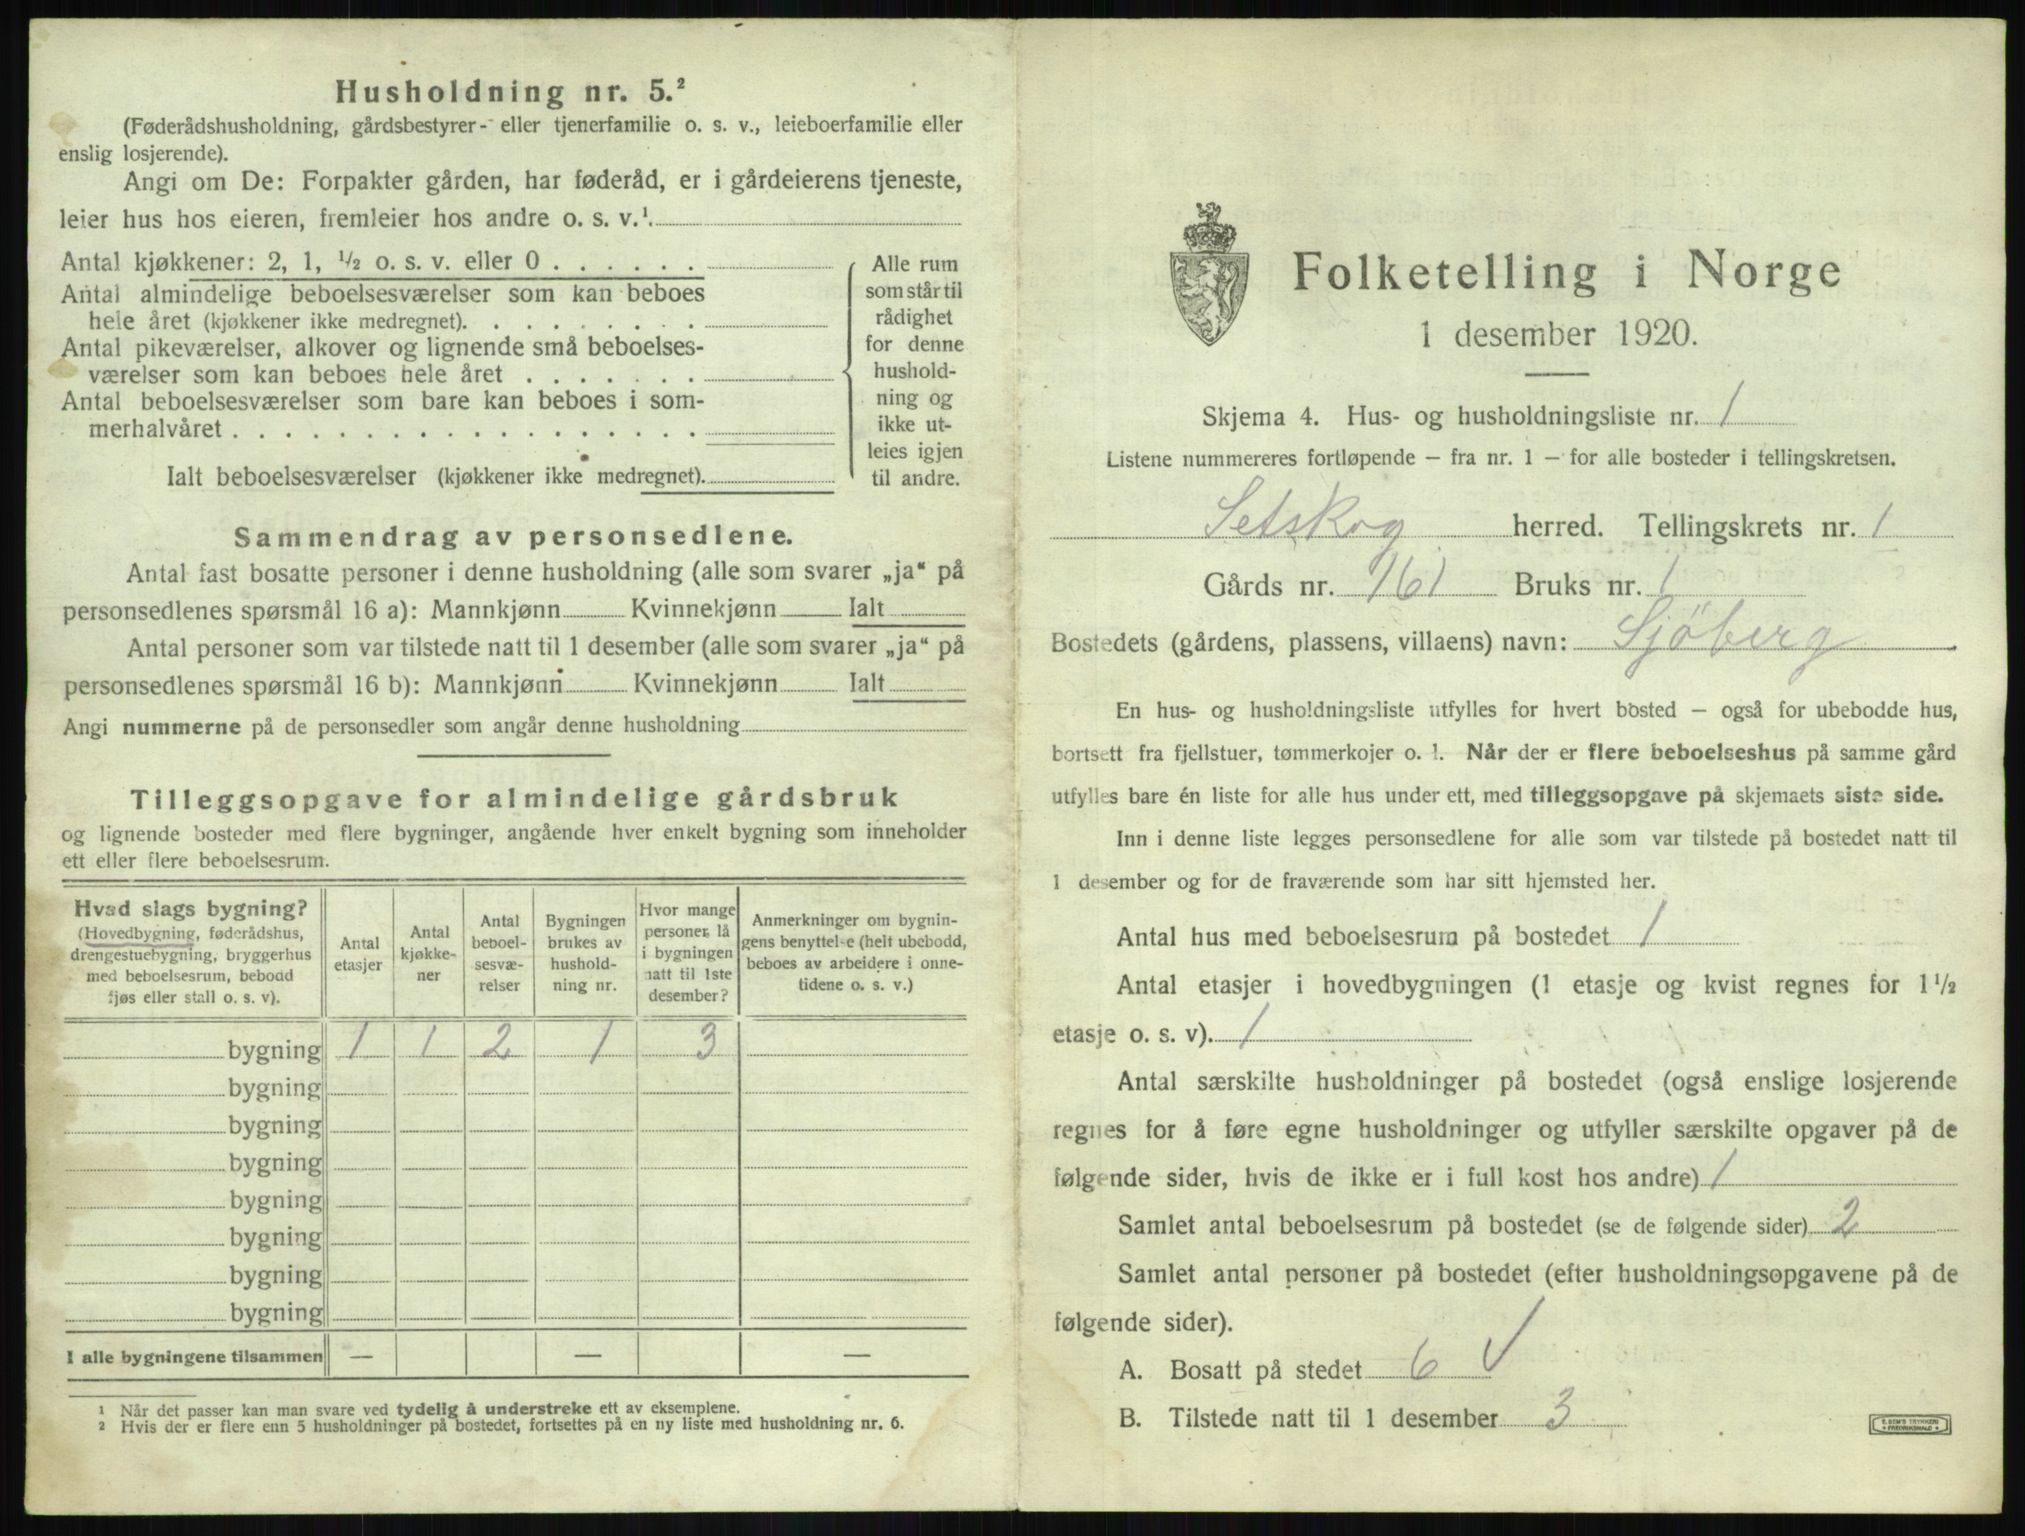 Husholdning nr. 5.²
(Føderådshusholdning, gårdsbestyrer- eller tjenerfamilie o. s. v., leieboerfamilie eller
enslig losjerende).
Angi om De: Forpakter gården, har føderåd, er i gårdeierens tjeneste,
leier hus hos eieren, fremleier hos andre o. s. v.¹
Antal kjøkkener: 2, 1, ½ o. s. v. eller 0 . . . . . .
Antal almindelige beboelsesværelser som kan beboes
hele året (kjøkkener ikke medregnet). . . . . . . . .
Antal pikeværelser, alkover og lignende små beboelses-
værelser som kan beboes hele året . . . . . . .
Antal beboelsesværelser som bare kan beboes i som-
merhalvåret . . . . . . . . . . . . . . . . . .
Ialt beboelsesværelser (kjøkkener ikke medregnet).
Alle rum
som står til
rådighet
for denne
hushold-
ning og
ikke ut-
leies igjen
til andre.
Sammendrag av personsedlene.
Antal fast bosatte personer i denne husholdning (alle som svarer „ja“ på
personsedlenes spørsmål 16 a): Mannkjønn Kvinnekjønn Ialt
Antal personer som var tilstede natt til 1 desember (alle som svarer „ja“ på
personsedlenes spørsmål 16 b): Mannkjønn Kvinnekjønn Ialt
Angi nummerne på de personsedler som angår denne husholdning
Tilleggsopgave for almindelige gårdsbruk
og lignende bosteder med flere bygninger, angående hver enkelt bygning som inneholder
ett eller flere beboelsesrum.
Hvad slags bygning?
(Hovedbygning, føderådshus,
drengestuebygning, bryggerhus
med beboelsesrum, bebodd
fjøs eller stall o. s. v).
Antal
etasjer
Antal
kjøkke-
ner
Antal
beboel-
sesvæ-
relser
Bygningen
brukes av
hushold-
ning nr.
Hvor mange
personer lå
i bygningen
natt til 1ste
desember?
Anmerkninger om bygnin-
gens benyttelse (helt ubebodd,
beboes av arbeidere i onne-
tidene o. s. v.)
bygning 1 1 2 1 3
bygning
bygning
bygning
bygning
bygning
bygning
bygning
I alle bygningene tilsammen — — —
¹ Når det passer kan man svare ved tydelig å understreke ett av eksemplene.
² Hvis der er flere enn 5 husholdninger på bostedet, fortsettes på en ny liste med husholdning nr. 6.
Folketelling i Norge
1 desember 1920.
Skjema 4. Hus- og husholdningsliste nr. 1
Listene nummereres fortløpende — fra nr. 1 — for alle bosteder i tellingskretsen.
Setskog herred. Tellingskrets nr. 1
Gårds nr. 161 Bruks nr. 1
Bostedets (gårdens, plassens, villaens) navn: Sjöberg
En hus- og husholdningsliste utfylles for hvert bosted — også for ubebodde hus,
bortsett fra fjellstuer, tømmerkojer o. l. Når der er flere beboelseshus på samme gård
utfylles bare én liste for alle hus under ett, med tilleggsopgave på skjemaets siste side.
Inn i denne liste legges personsedlene for alle som var tilstede på bostedet natt til
1 desember og for de fraværende som har sitt hjemsted her.
Antal hus med beboelsesrum på bostedet 1
Antal etasjer i hovedbygningen (1 etasje og kvist regnes for 1½
etasje o. s. v). 1
Antal særskilte husholdninger på bostedet (også enslige losjerende
regnes for å føre egne husholdninger og utfyller særskilte opgaver på de
følgende sider, hvis de ikke er i full kost hos andre) 1
Samlet antal beboelsesrum på bostedet (se de følgende sider) 2
Samlet antal personer på bostedet (efter husholdningsopgavene på de
følgende sider).
A. Bosatt på stedet 6 ✓
B. Tilstede natt til 1 desember 3
E. SEM'S TRYKKERI
FREDRIKSHALD